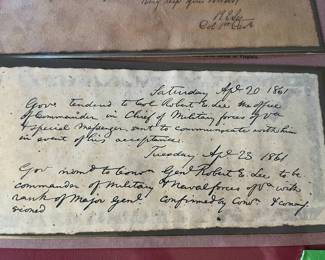 Very resp your obdt
R E Lee
Col 1st Cav
Saturday Apl 20 1861
Gov. tendered to Col Robert E Lee the office
of Commander in Chief of Military forces of Va
& special Messenger sent to communicate with him
in event of his acceptance.
Tuesday Apl 23 1861
Gov nomd to Conv Genl Robert E Lee to be
commander of Military & Naval forces of Va with
rank of Major Genl Confirmed by Conv. & comis
sioned